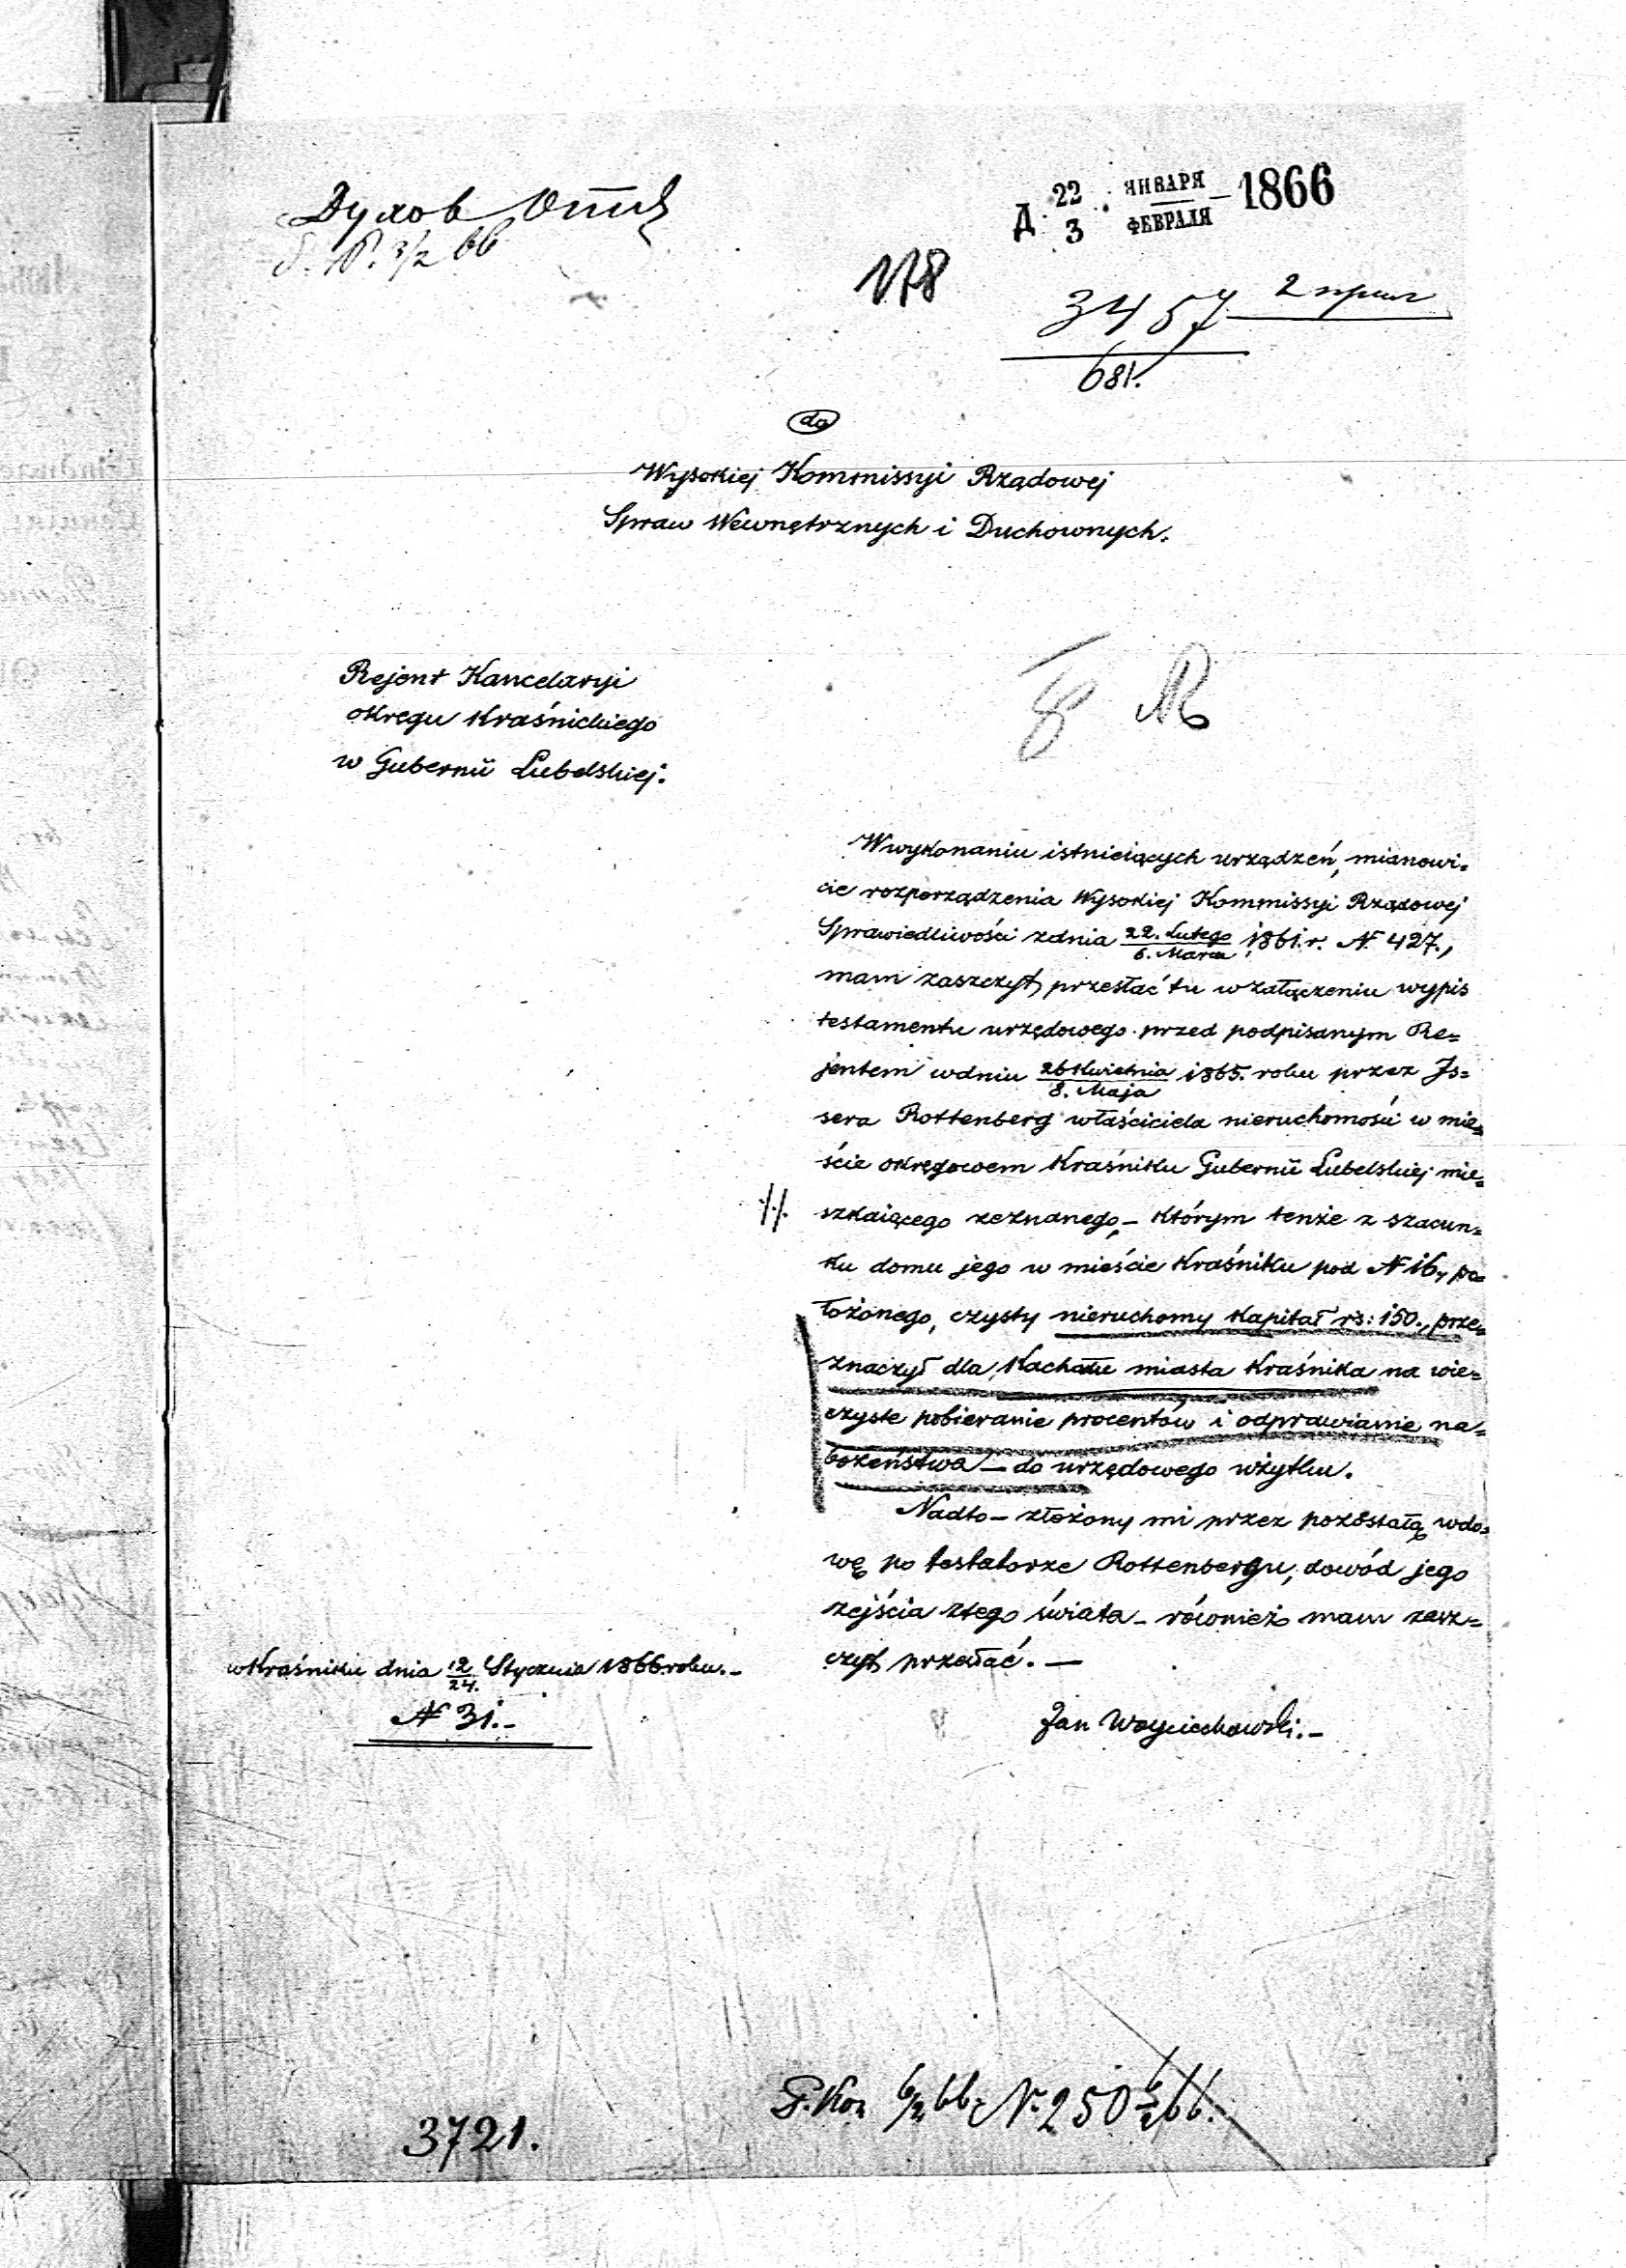 Духов
3/2 66
Д. 22/3 ЯНВАРЯ/ФЕВРАЛЯ 1866
178
3457 2 прил
681.
do
Wysokiej Kommissyi Rządowej
Spraw Wewnętrznych i Duchownych.
Rejent Kancelaryi
okręgu Kraśnickiego
w Gubernii Lubelskiej.
W wykonaniu istnieiących urządzeń, mianowi-
cie rozporządzenia Wysokiej Kommissyi Rządowej
Sprawiedliwości z dnia 22. Lutego/6. Marca 1861. r. N 427.,
mam zaszczyt, przesłać tu w załączeniu wypis
testamentu urzędowego przed podpisanym Re=
jentem w dniu 26 Kwietnia/8. Maja 1865. roku przez Js=
sera Rottenberg właściciela nieruchomości w mie=
ście okręgowem Kraśniku Gubernii Lubelskiej mie=
szkaiącego zeznanego, – którym tenże z szacun=
ku domu jego w mieście Kraśniku pod N 16, po=
łożonego, czysty nieruchomy kapitał rs: 150., prze=
znaczył dla Kachału miasta Kraśnika na wie=
czyste pobieranie procentów i odprawianie na=
bożeństwa – do urzędowego użytku.
Nadto – złożony mi przez pozostałą wdo=
wę po testatorze Rottenbergu, dowód jego
zejścia z tego świata – również mam zasz=
czyt przesłać. –
w Kraśniku dnia 12/24. Stycznia 1866 roku. –
N 31. –
Jan Woyciechowski. –
3721.
N. 250 6/2 66.